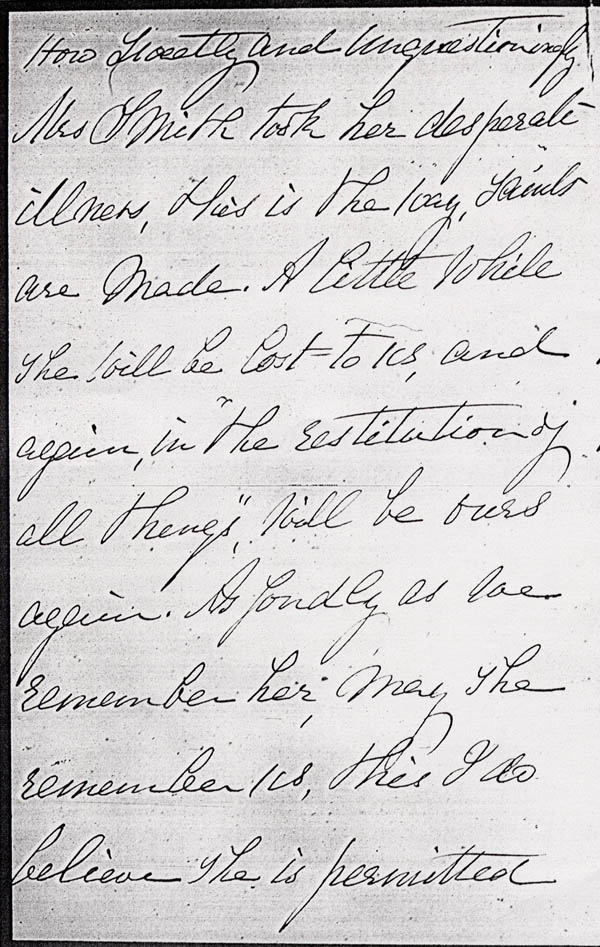 How Sweetly and Unquestioningly
Mrs Smith took her desperate
illness, this is the way, saints
are made. A little while
she will be lost to us, and
again, in "the restitution of
all things", will be ours
again. As fondly as we
remember her, may she
remember us, this I do
believe she is permitted